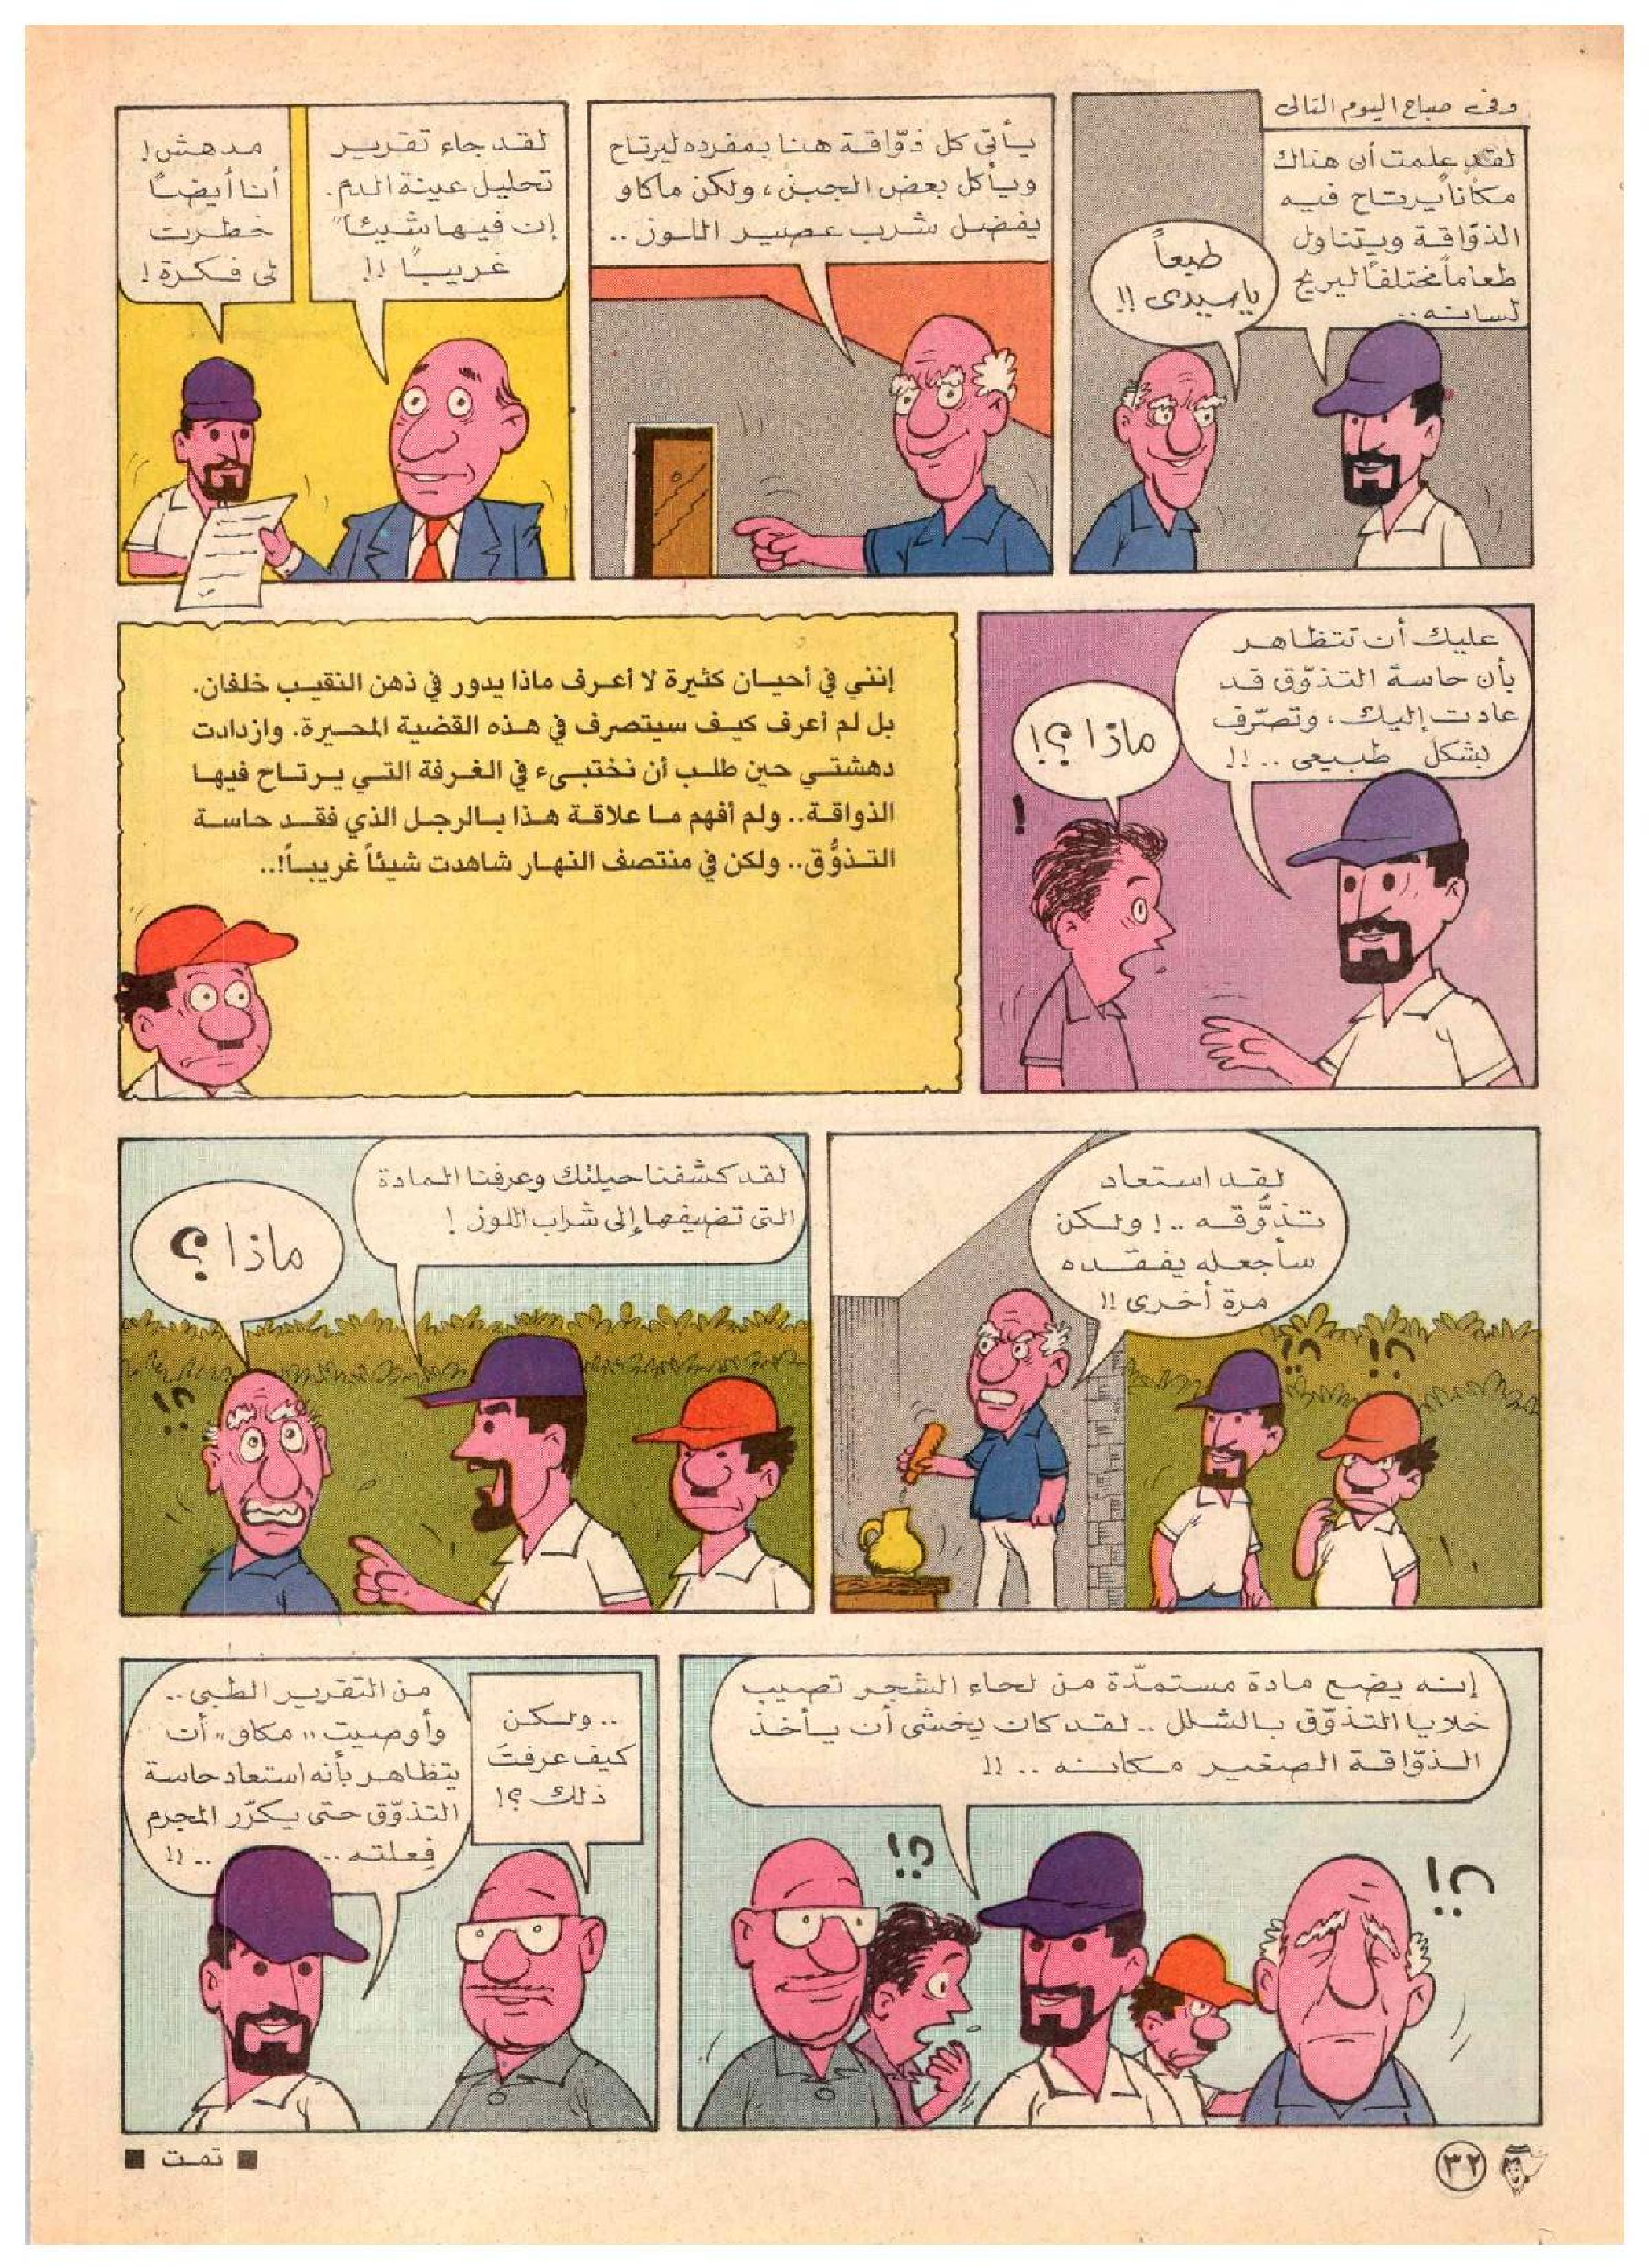 وفى صباح اليوم التالى
لقد علمت أن هناك
مكاناً يرتاح فيه
الذوّاقة ويتناول
طعاماً مختلفاً ليريح
لسانه..
طبعاً
ياسيدى !!
يأتى كل ذوّاقة هنا بمفرده ليرتاح
ويأكل بعض الجبن، ولكن ماكاو
يفضل شرب عصير اللوز ..
لقد جاء تقرير
تحليل عينة الدم.
إن فيها شيئاً
غريباً !!
مدهش!
أنا أيضاً
خطرت
لى فكرة !
عليك أن تتظاهر
بأن حاسة التذوّق قد
عادت إليك، وتصرّف
بشكل طبيعى .. !!
ماذا ؟!
!
إنني في أحيان كثيرة لا أعرف ماذا يدور في ذهن النقيب خلفان.
بل لم أعرف كيف سيتصرف في هذه القضية المحيرة. وازدادت
دهشتي حين طلب أن نختبىء في الغرفة التي يرتاح فيها
الذواقة.. ولم أفهم ما علاقة هذا بالرجل الذي فقد حاسة
التذوُّق.. ولكن في منتصف النهار شاهدت شيئاً غريباً!..
لقد استعاد
تذوُّقه .. ! ولكن
سأجعله يفقده
مرة أخرى !!
؟!
؟!
لقد كشفنا حيلتك وعرفنا المادة
التى تضيفها إلى شراب اللوز !
ماذا ؟
؟!
إنه يضع مادة مستمدّة من لحاء الشجر تصيب
خلايا التذوّق بالشلل .. لقد كان يخشى أن يأخذ
الذوّاقة الصغير مكانه .. !!
؟!
؟!
.. ولكن
كيف عرفتَ
ذلك ؟!
من التقرير الطبى ..
وأوصيت "مكاو" أن
يتظاهر بأنه استعاد حاسة
التذوّق حتى يكرّر المجرم
فِعلته .. .. !!
٣٢
■ تمت ■